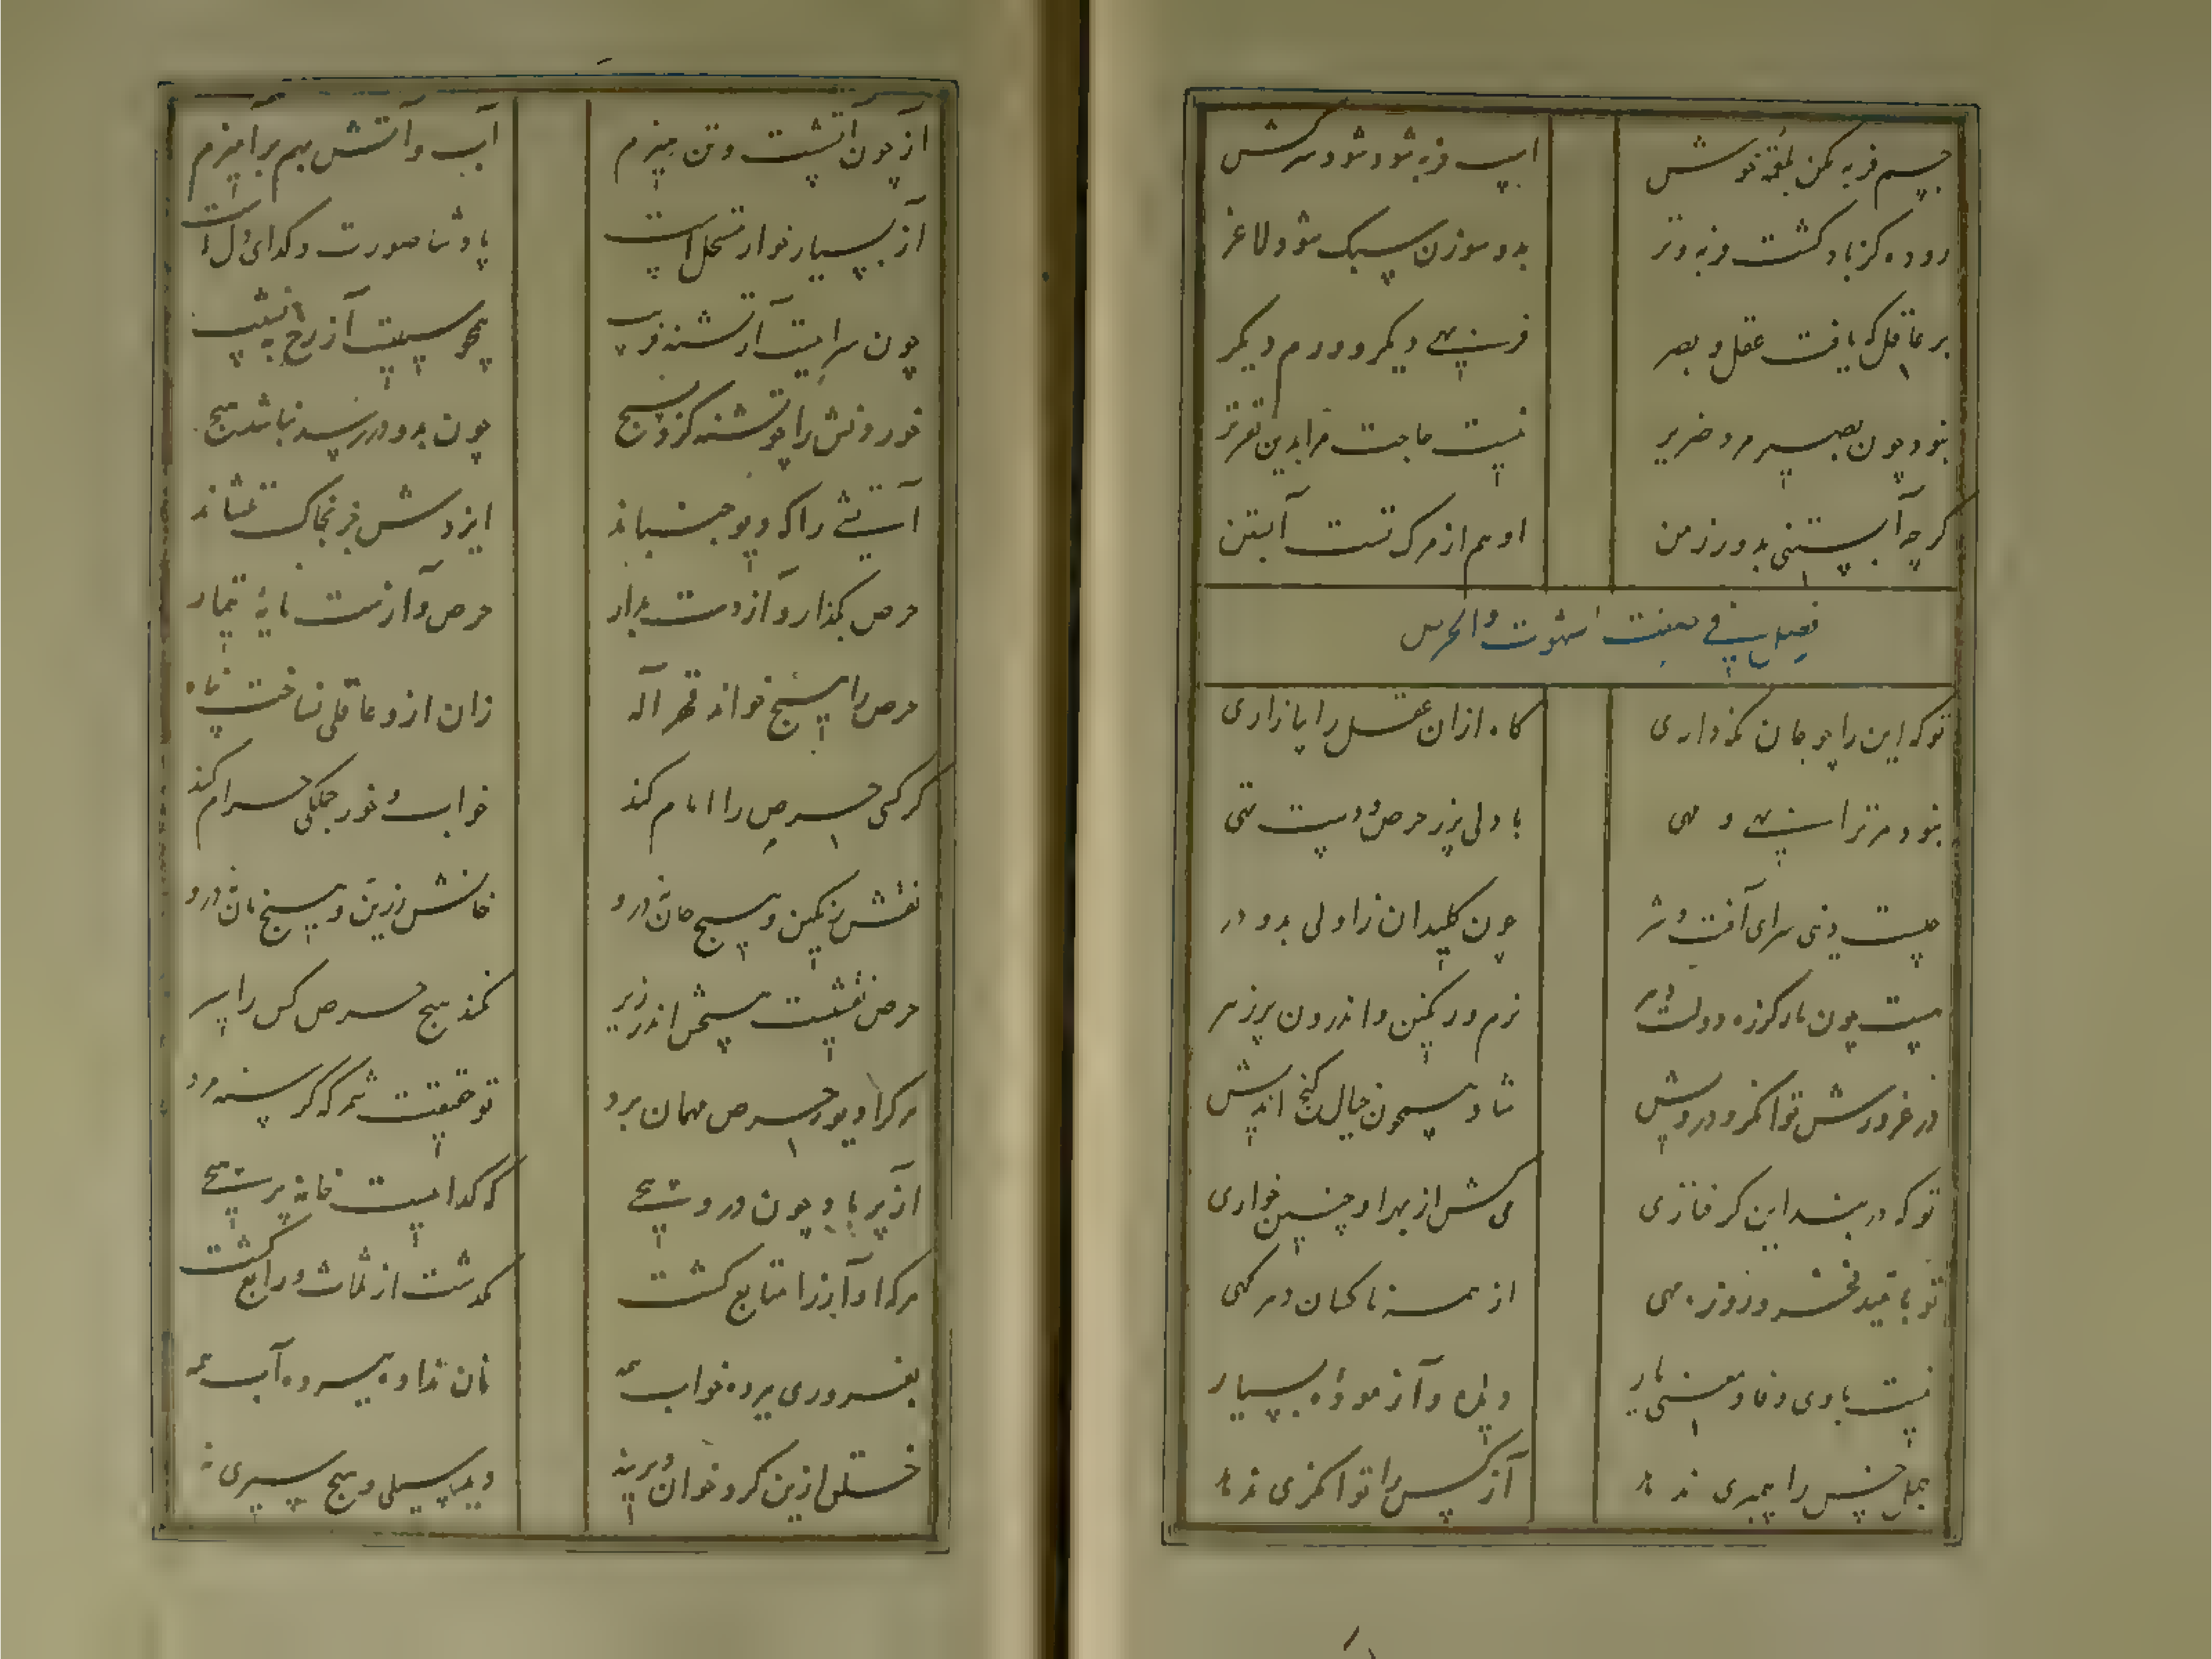 جسم فربه مکن بلقمه خوش اسب فربه شود شود سرکش
روده کز باد کشت فربه وتر بدو سوزن سبک شود لاغر
بر عاقل که یافت عقل و بصر فربهی دیکر و ورم دیکر
نبود چون بصیر مرد ضریر نیست حاجت مرا بدین تقریر
کرچه آبستنی بدور زمن او هم از مرک تست آبستن
فی صفت الشهوت والحرص
تو که این را چو جان نکه داری کاه ازان عقل را بیازاری
نبود مر ترا بهی و مهی با دلی پر ز حرص و دست تهی
چیست دنیی سرای آفت و شر چون کلیدان ز اولی بدو در
هست چون مار کرزه دولت دهر نرم و رنکین و اندرون پر زهر
در غرورش توانکر و درویش شاد همچون خیال کنج اندیش
تو که در بند این کرفتاری می کش از بهر او چنین خواری
از همه ناکسان
نیست با وی وفا و معنی یار دیدم و آزموده‌ام بسیار
جهل خس را پیمبری ندهد آز کس را توانکری ندهد
آز چون آتشست و تن هیزم آب و آتش بهم برآمیزم
آز بسیار خوار تنکدل است پادشا صورت و کدای دل است
چون سرابیست آز تشنه فریب
خوردنش را چو تشنه کرد بسیج چون بدو در رسید نباشد هیچ
آتشی را که دیو جنباند ایزدش جز بخاک ننشاند
حرص بکذار و آز دست بدار حرص و آزست مایه تیمار
حرص را سنج خواند قهر آله زان ازو عاقلی نساخت پناه
کر کسی حرص را امام کند خواب و خور جملکی حرام کند
نقش رنکین و هیچ جان درو خانش زرین و هیچ نان درو
حرص نقشیست شخص اندر زیر نکند هیچ حرص کس را سیر
هر کرا دیو حرص مهمان برد تو حقیقت شمر که کرسنه مرد
آز پر باد چون درو شیی که کداییست خانه پر شیی
هر که او آز را متابع کشت کدشت از ثلاث و رابع کشت
بفسردری برده خواب همه نان نداده ببرده آب همه
خلق ازین کرد خوان دیرینه دیده سیلی و هیچ سیری نه